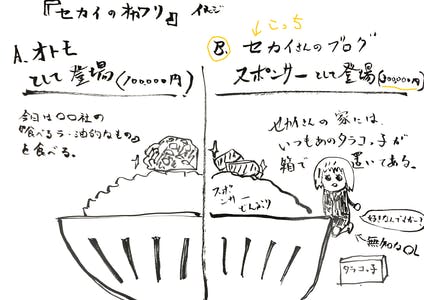 『セカイのオワリ』イメージ
A. オトモ
として登場(100,000円)
今日は○○社の
『食べるラー油的なもの』
を食べる。
↙こっち
B. セカイさんのブログ
スポンサーとして登場(200,000円)
セカイさんの家には、
いつもあのタラコっ子が
箱で置いてある。
スポンサー
てんこもり
←無知なOL
タラコっ子